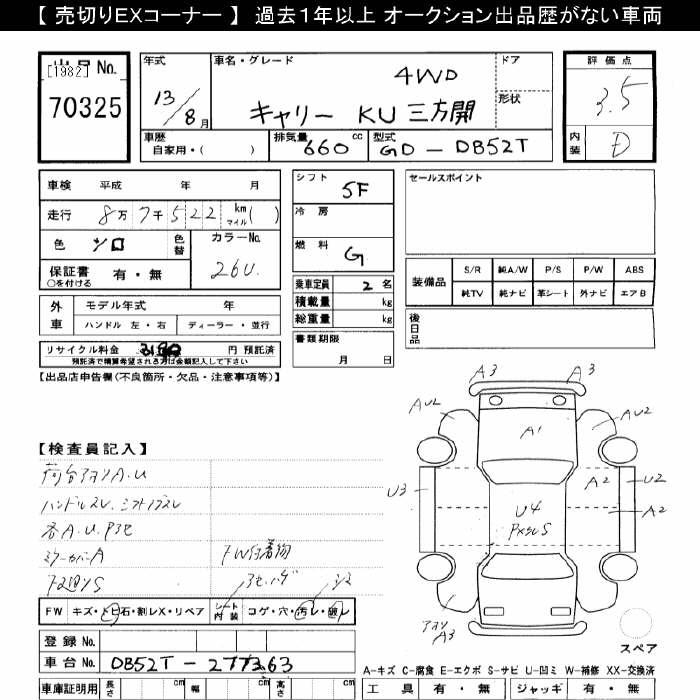 【 売切りEXコーナー 】 過去1年以上 オークション出品歴がない車両
出品No.
[1982]
70325
年式
13/8月
車名・グレード
4WD
キャリー KU 三方開
ドア
形状
評価点
3.5
内装
D
車歴
自家用・( )
排気量
660 cc
型式
GD - DB52T
車検 平成 年 月
走行 8万 7千 522 km マイル ( )
色 シロ
色替
カラーNo.
26U
保証書 有・無
○を付ける
外車
モデル年式 年
ハンドル 左・右
ディーラー・並行
リサイクル料金 円 預託済
預託済で精算希望される方は金額記入して下さい
シフト 5F
冷房
燃料 G
乗車定員 2 名
積載量 kg
総重量 kg
書類期限
月 日
セールスポイント
装備品
S/R 純A/W P/S P/W ABS
純TV 純ナビ 革シート 外ナビ エアB
後日品
【出品店申告欄(不良箇所・欠品・注意事項等)】
【検査員記入】
荷台 A.U
ハンドルスレ
各A.U.
ミラーカバーA
FW付着物
A3 A3
AU2 AU2
A1
U3
A2 U2
A2
U4
A3
スペア
FW キズ・トビ石・割レX・リペア
シート内装 コゲ・穴・汚レ・破レ
登録No.
車台No. DB52T-277363
車庫証明用 長さ cm 幅 cm 高さ cm
A-キズ C-腐食 E-エクボ S-サビ U-凹ミ W-補修 XX-交換済
工具 有・無 ジャッキ 有・無